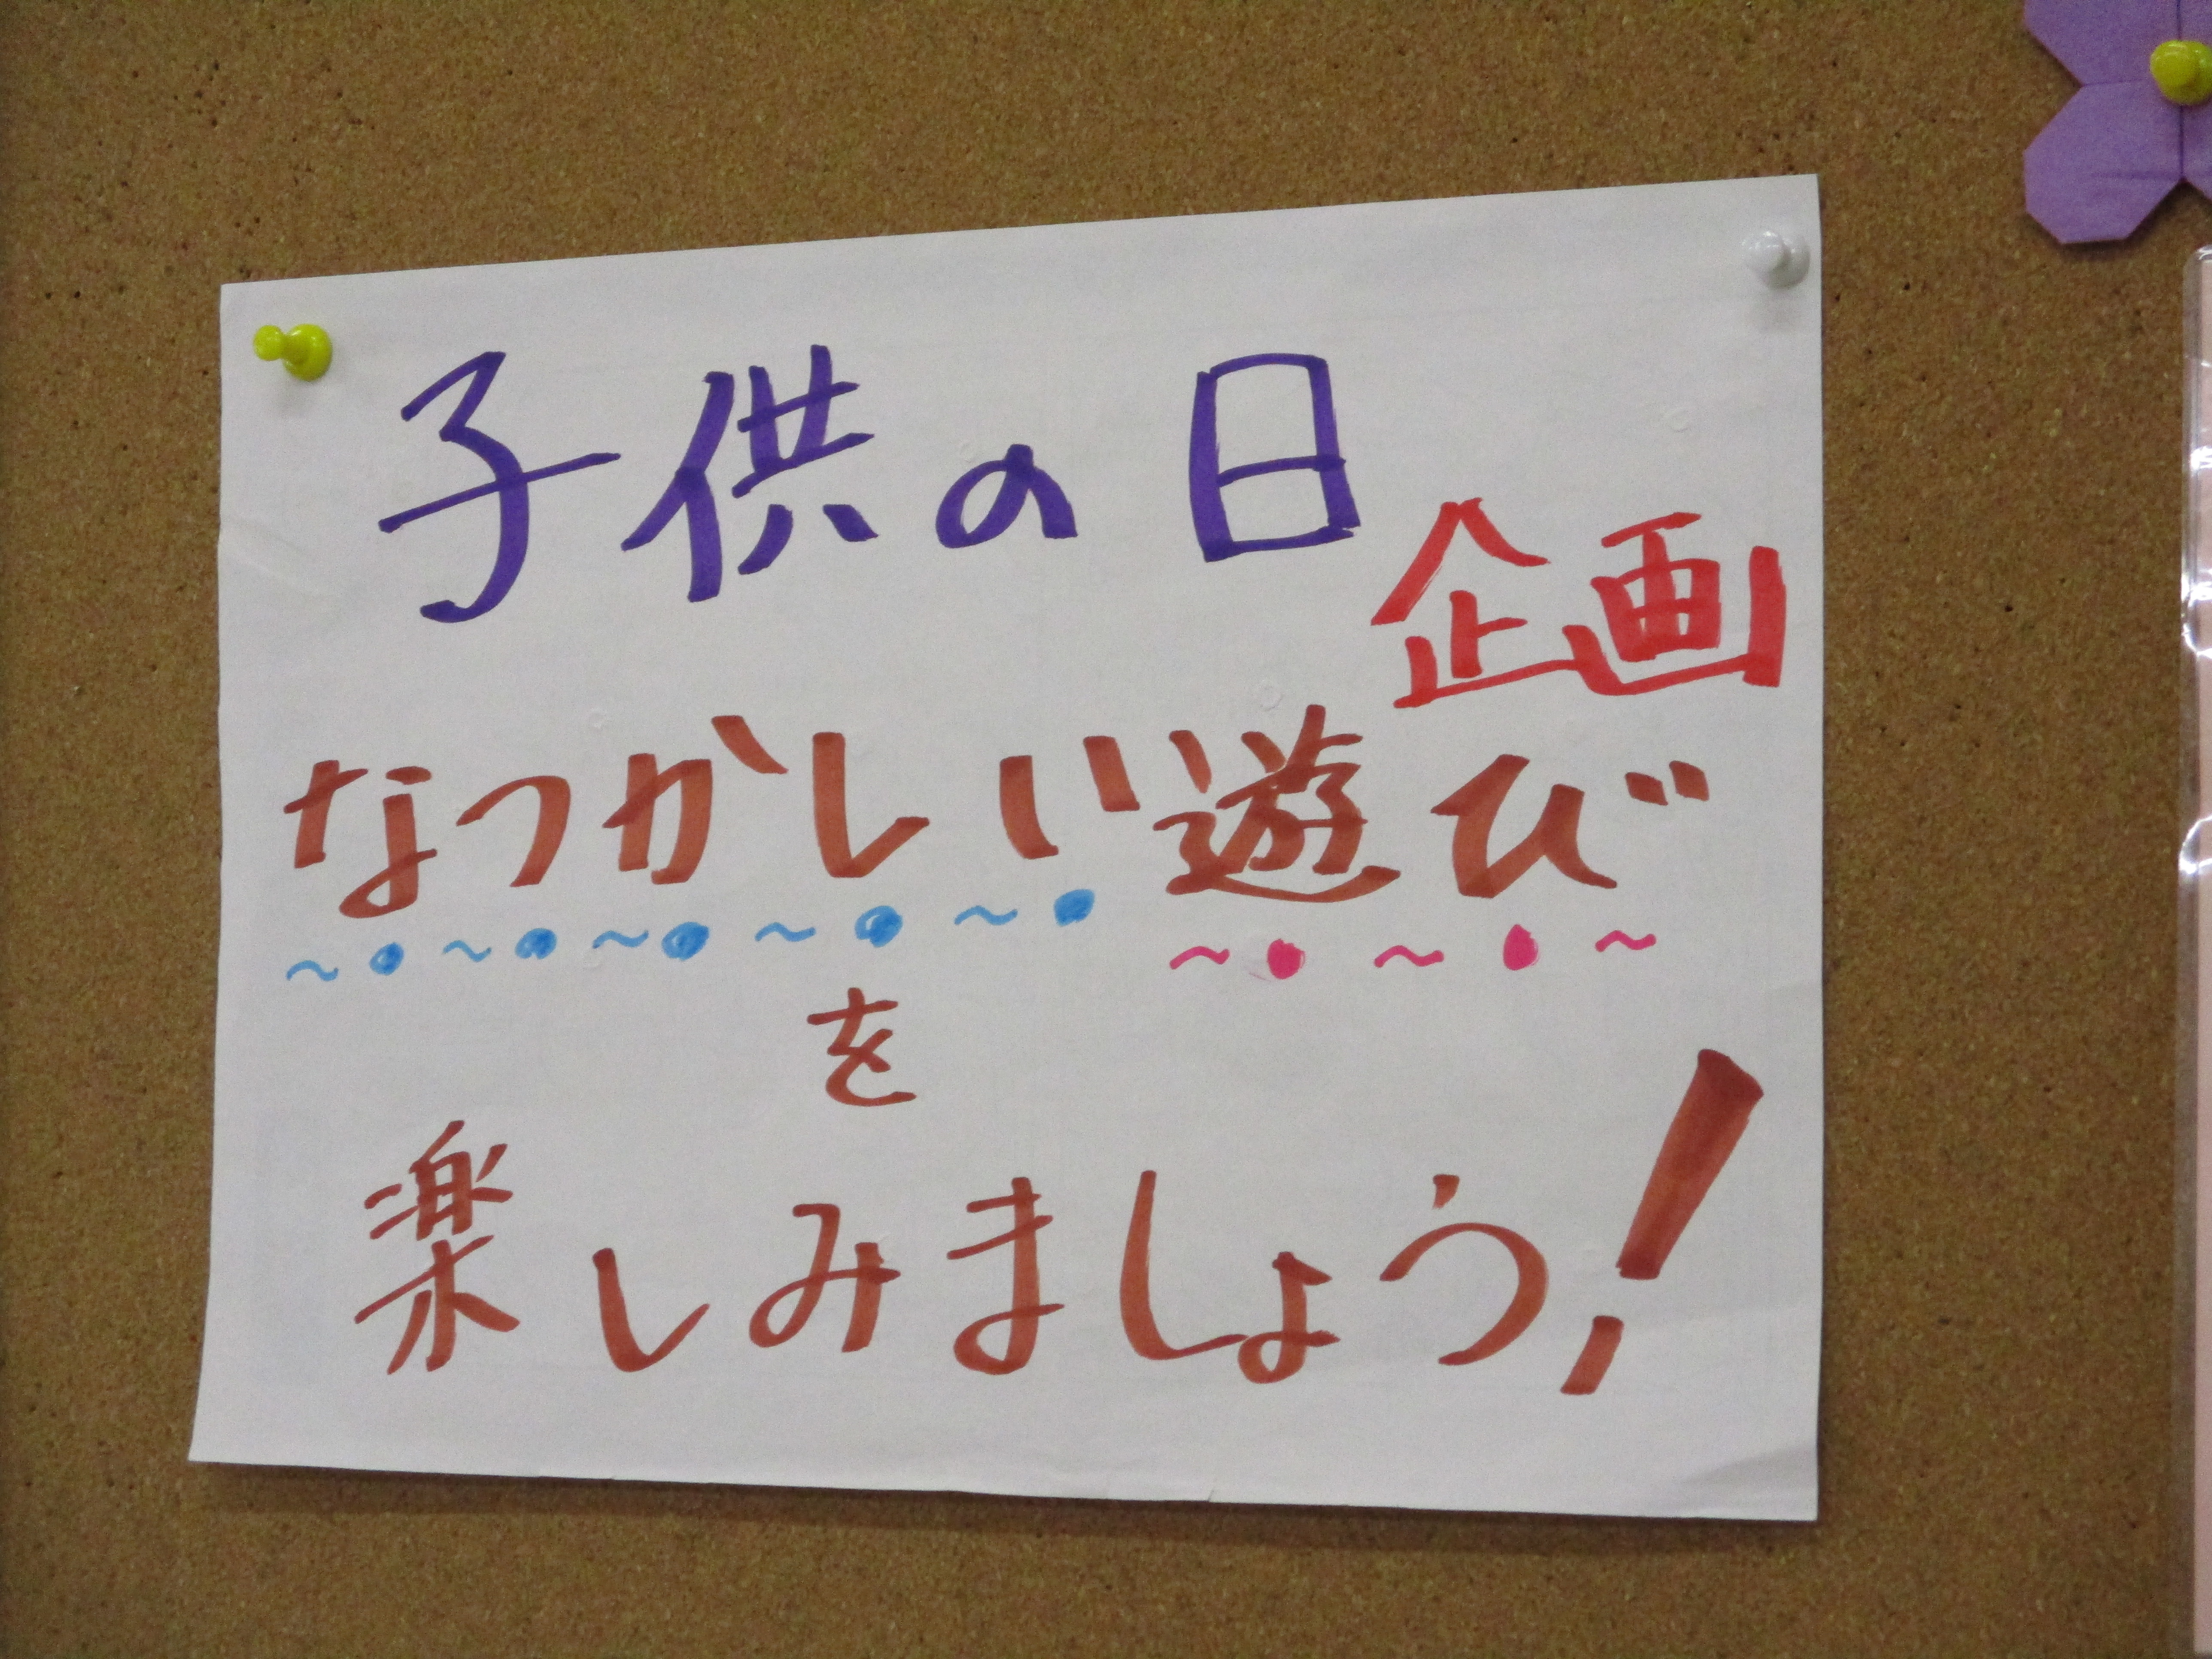 子供の日
企画
なつかしい遊び
を
楽しみましょう!